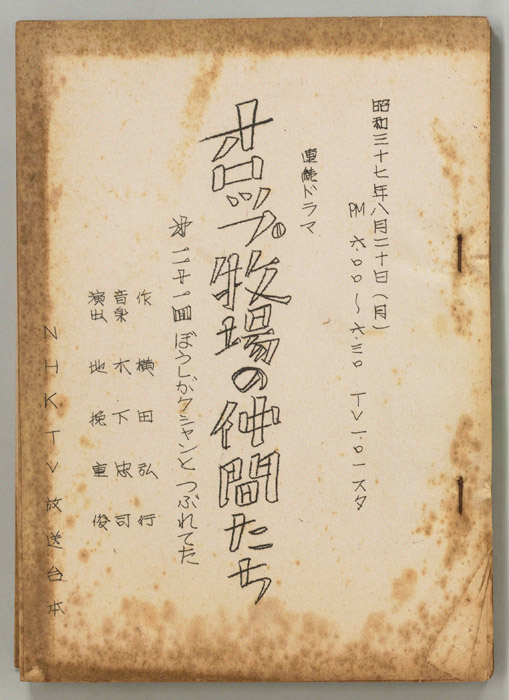 昭和三十七年八月二十日（月）
PM 六.００～六.三０ TV一０一スタ
連続ドラマ
ホロップ牧場の仲間たち
第二十一回 ぼうしがクシャンとつぶれてた
作 横田弘行
音楽 木下忠司
演出 地挽重俊
NHKTV放送台本